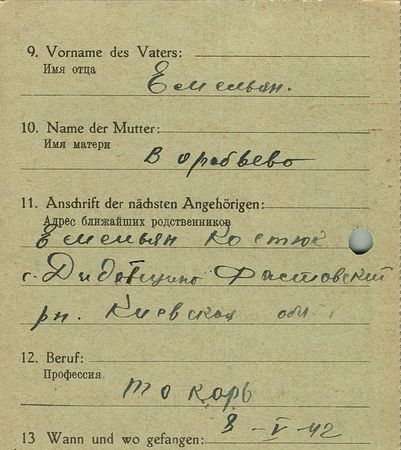 9. Vorname des Vaters:
Имя отца
Емельян.
10. Name der Mutter:
Имя матери
Воробьево
11. Anschrift der nächsten Angehörigen:
Адрес ближайших родственников
Емельян Костюк
с. Дидовщино Фастовский
рн. Киевская обл.
12. Beruf:
Профессия
токарь
13 Wann und wo gefangen: 8-V-42